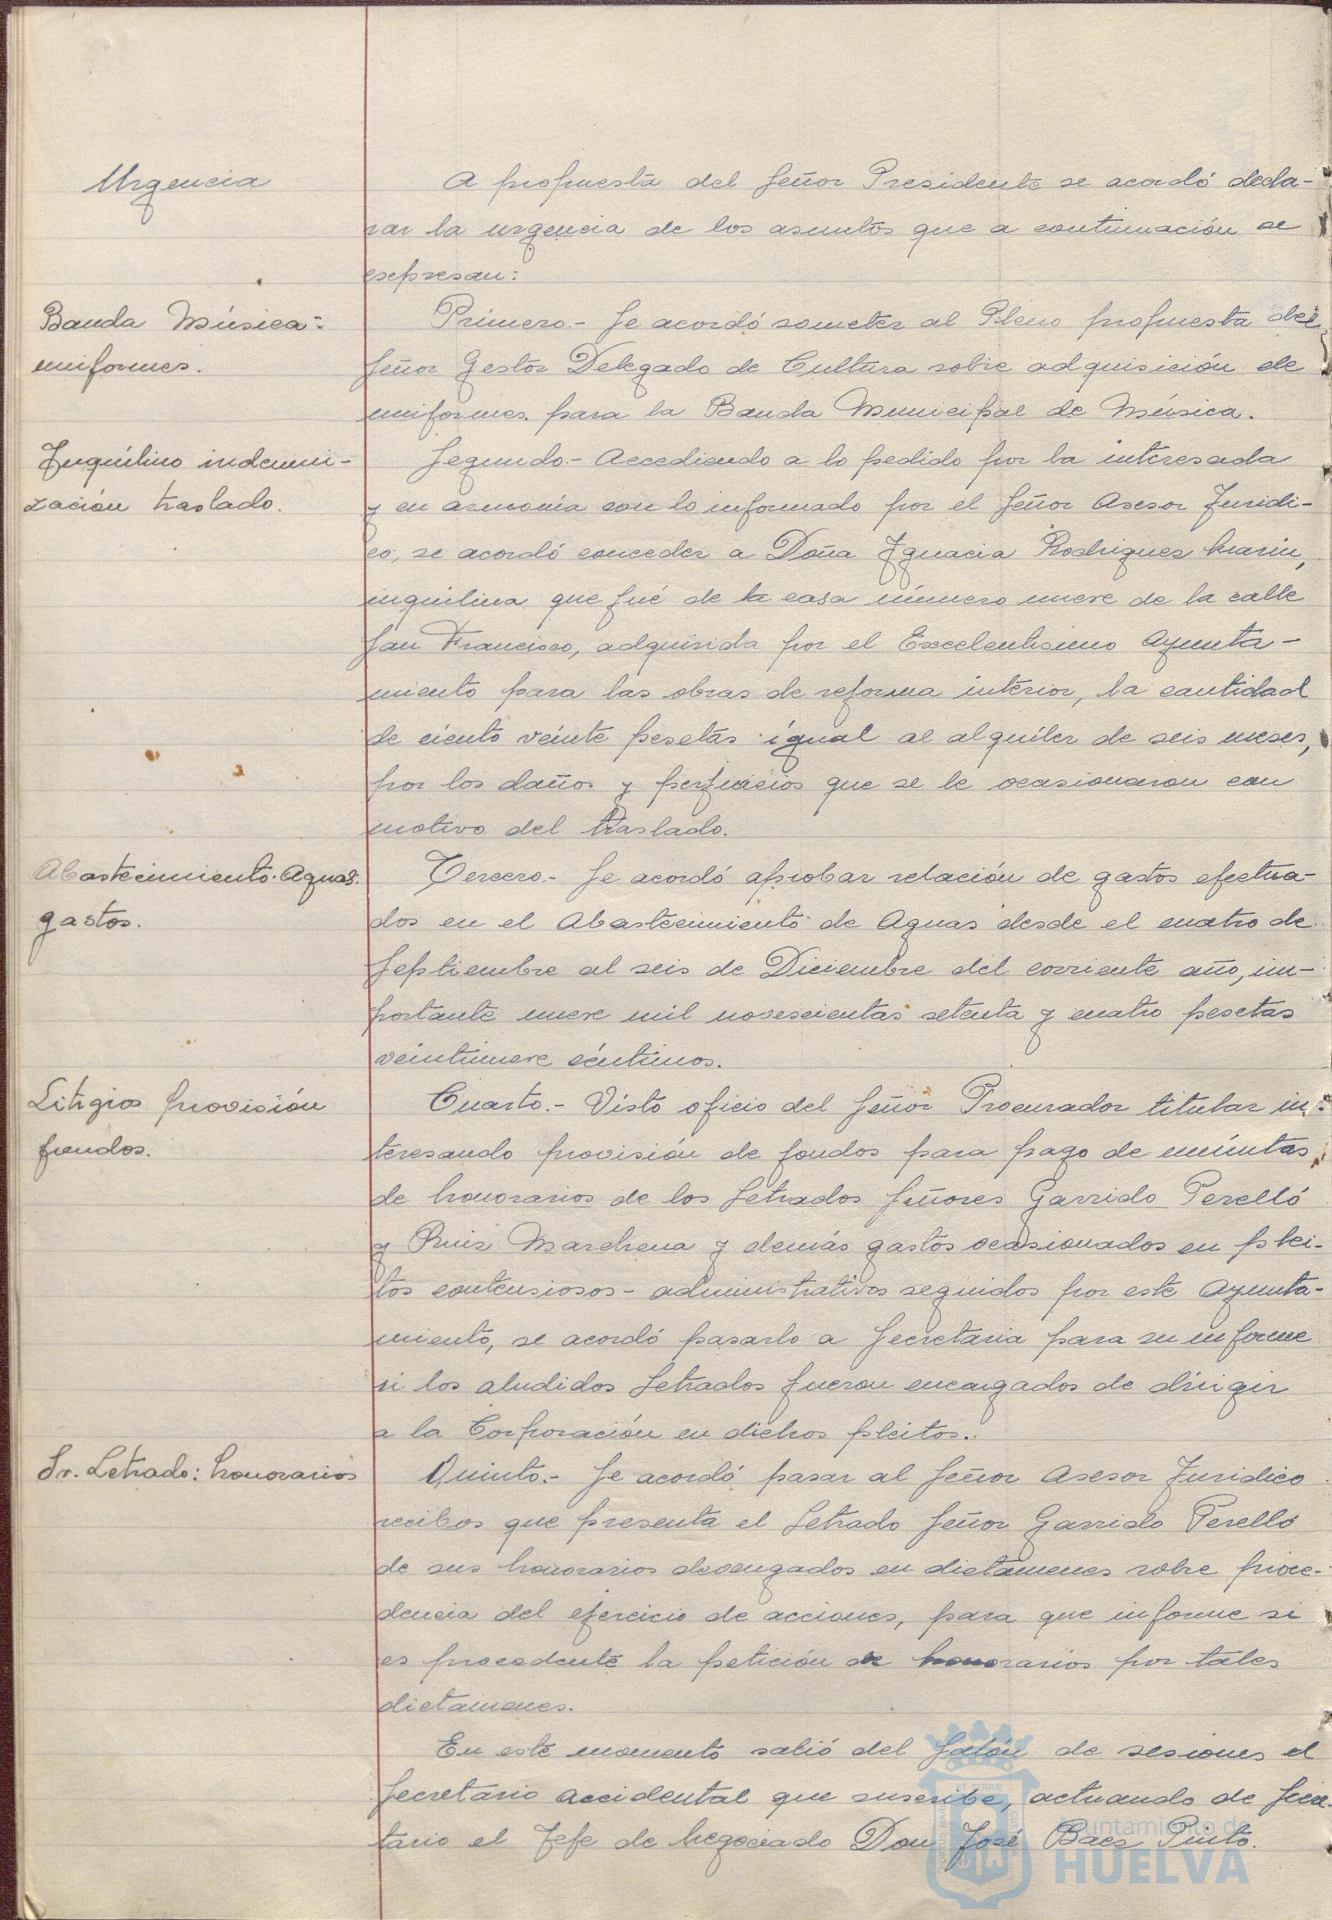 Urgencia
A propuesta del Señor Presidente se acordó decla-
rar la urgencia de los asuntos que a continuación se
expresan:
Banda Música:
uniformes.
Primero.- Se acordó someter al Pleno propuesta del
Señor Gestor Delegado de Cultura sobre adquisición de
uniformes para la Banda Municipal de Música.
Inquilino indemni-
zación traslado.
Segundo.- Accediendo a lo pedido por la interesada
y en armonía con lo informado por el Señor Asesor Juridi-
co, se acordó conceder a Doña Ignacia Rodriguez Marin,
inquilina que fué de la casa número nueve de la calle
San Francisco, adquirida por el Excelentisimo Ayunta-
miento para las obras de reforma interior, la cantidad
de ciento veinte pesetas igual al alquiler de seis meses,
por los daños y perjuicios que se le ocasionaron con
motivo del traslado.
Abastecimiento. Aguas.
gastos.
Tercero.- Se acordó aprobar relación de gastos efectua-
dos en el Abastecimiento de Aguas desde el cuatro de
Septiembre al seis de Diciembre del corriente año, im-
portante nueve mil novescientas setenta y cuatro pesetas
veintinueve céntimos.
Litigios provisión
fondos.
Cuarto.- Visto oficio del Señor Procurador titular in-
teresando provisión de fondos para pago de minutas
de honorarios de los Letrados Señores Garrido Perelló
y Ruiz Marchena y demás gastos ocasionados en plei-
tos contensiosos-administrativos seguidos por este Ayunta-
miento, se acordó pasarlo a Secretaria para su informe
si los aludidos Letrados fueron encargados de dirigir
a la Corporación en dichos pleitos.
Sr. Letrado: honorarios
Quinto.- Se acordó pasar al Señor Asesor Juridico
recibos que presenta el Letrado Señor Garrido Perelló
de sus honorarios devengados en dictamenes sobre proce-
dencia del ejercicio de acciones, para que informe si
es procedente la petición de honorarios por tales
dictamenes.
En este momento salió del Salón de sesiones el
Secretario accidental que suscribe, actuando de Secre-
tario el Jefe de Negociado Don José Baez Pinto.
Ayuntamiento de
HUELVA